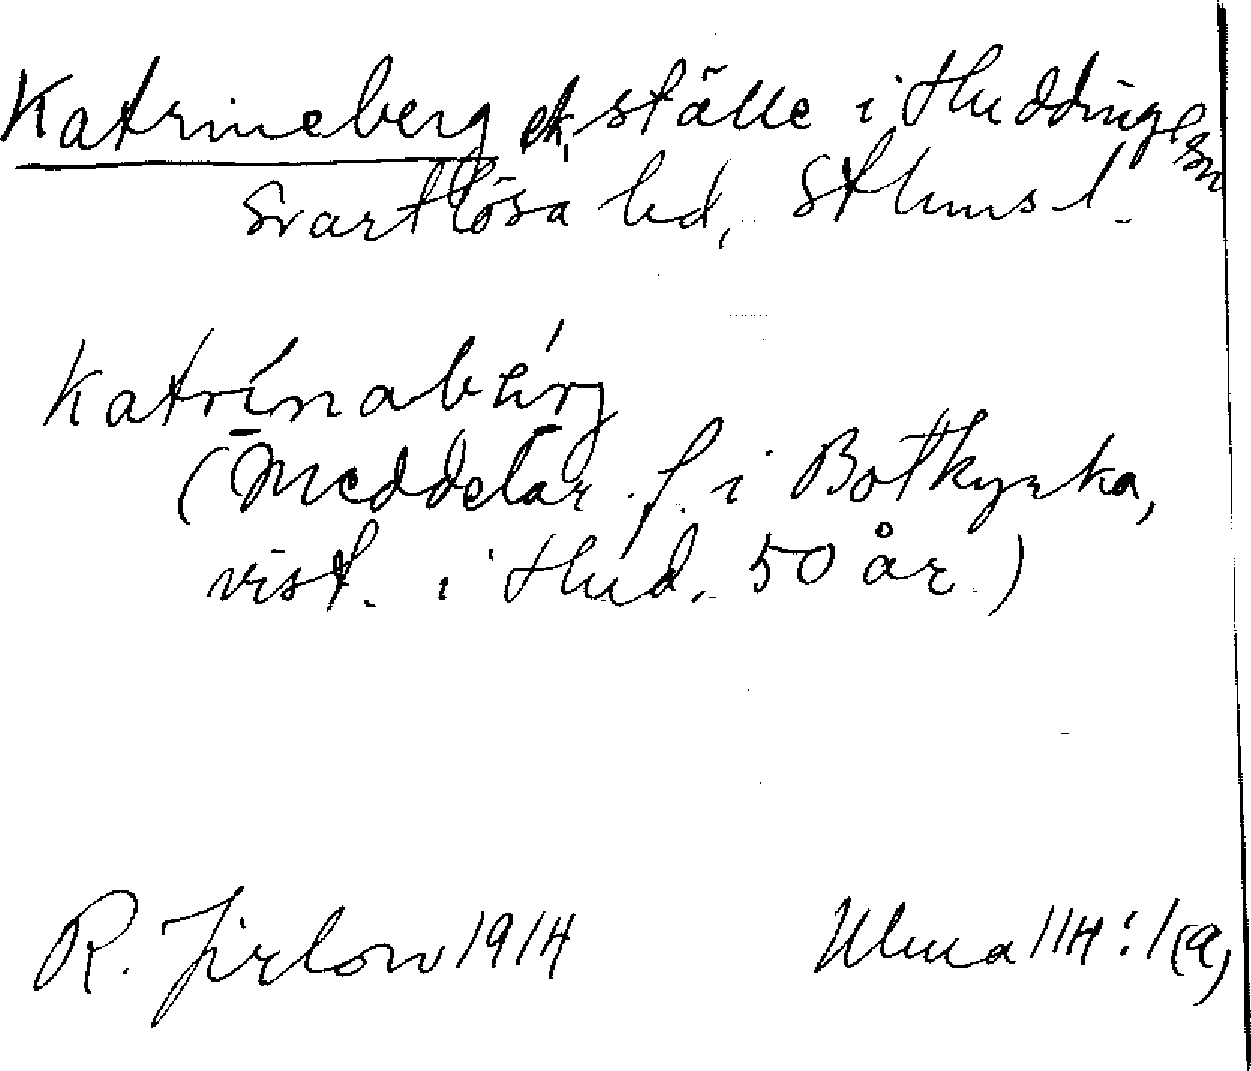 Katrineberg ett ställe i Huddinge sn
Svartlösa hd, Sthms l.
Katrínabärg
(Meddelar. f. i Botkyrka,
vist. i Hud. 50 år.)
R. Jirlow 1914
Ulma 114:1(9)